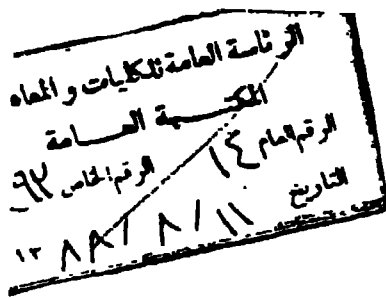 الرئاسة العامة للكليات و المعاه
المكتبة العامة
الرقم العام ١٤ الرقم الخاص ٩٢
التاريخ ١١ / ٨ / ١٣٨٨